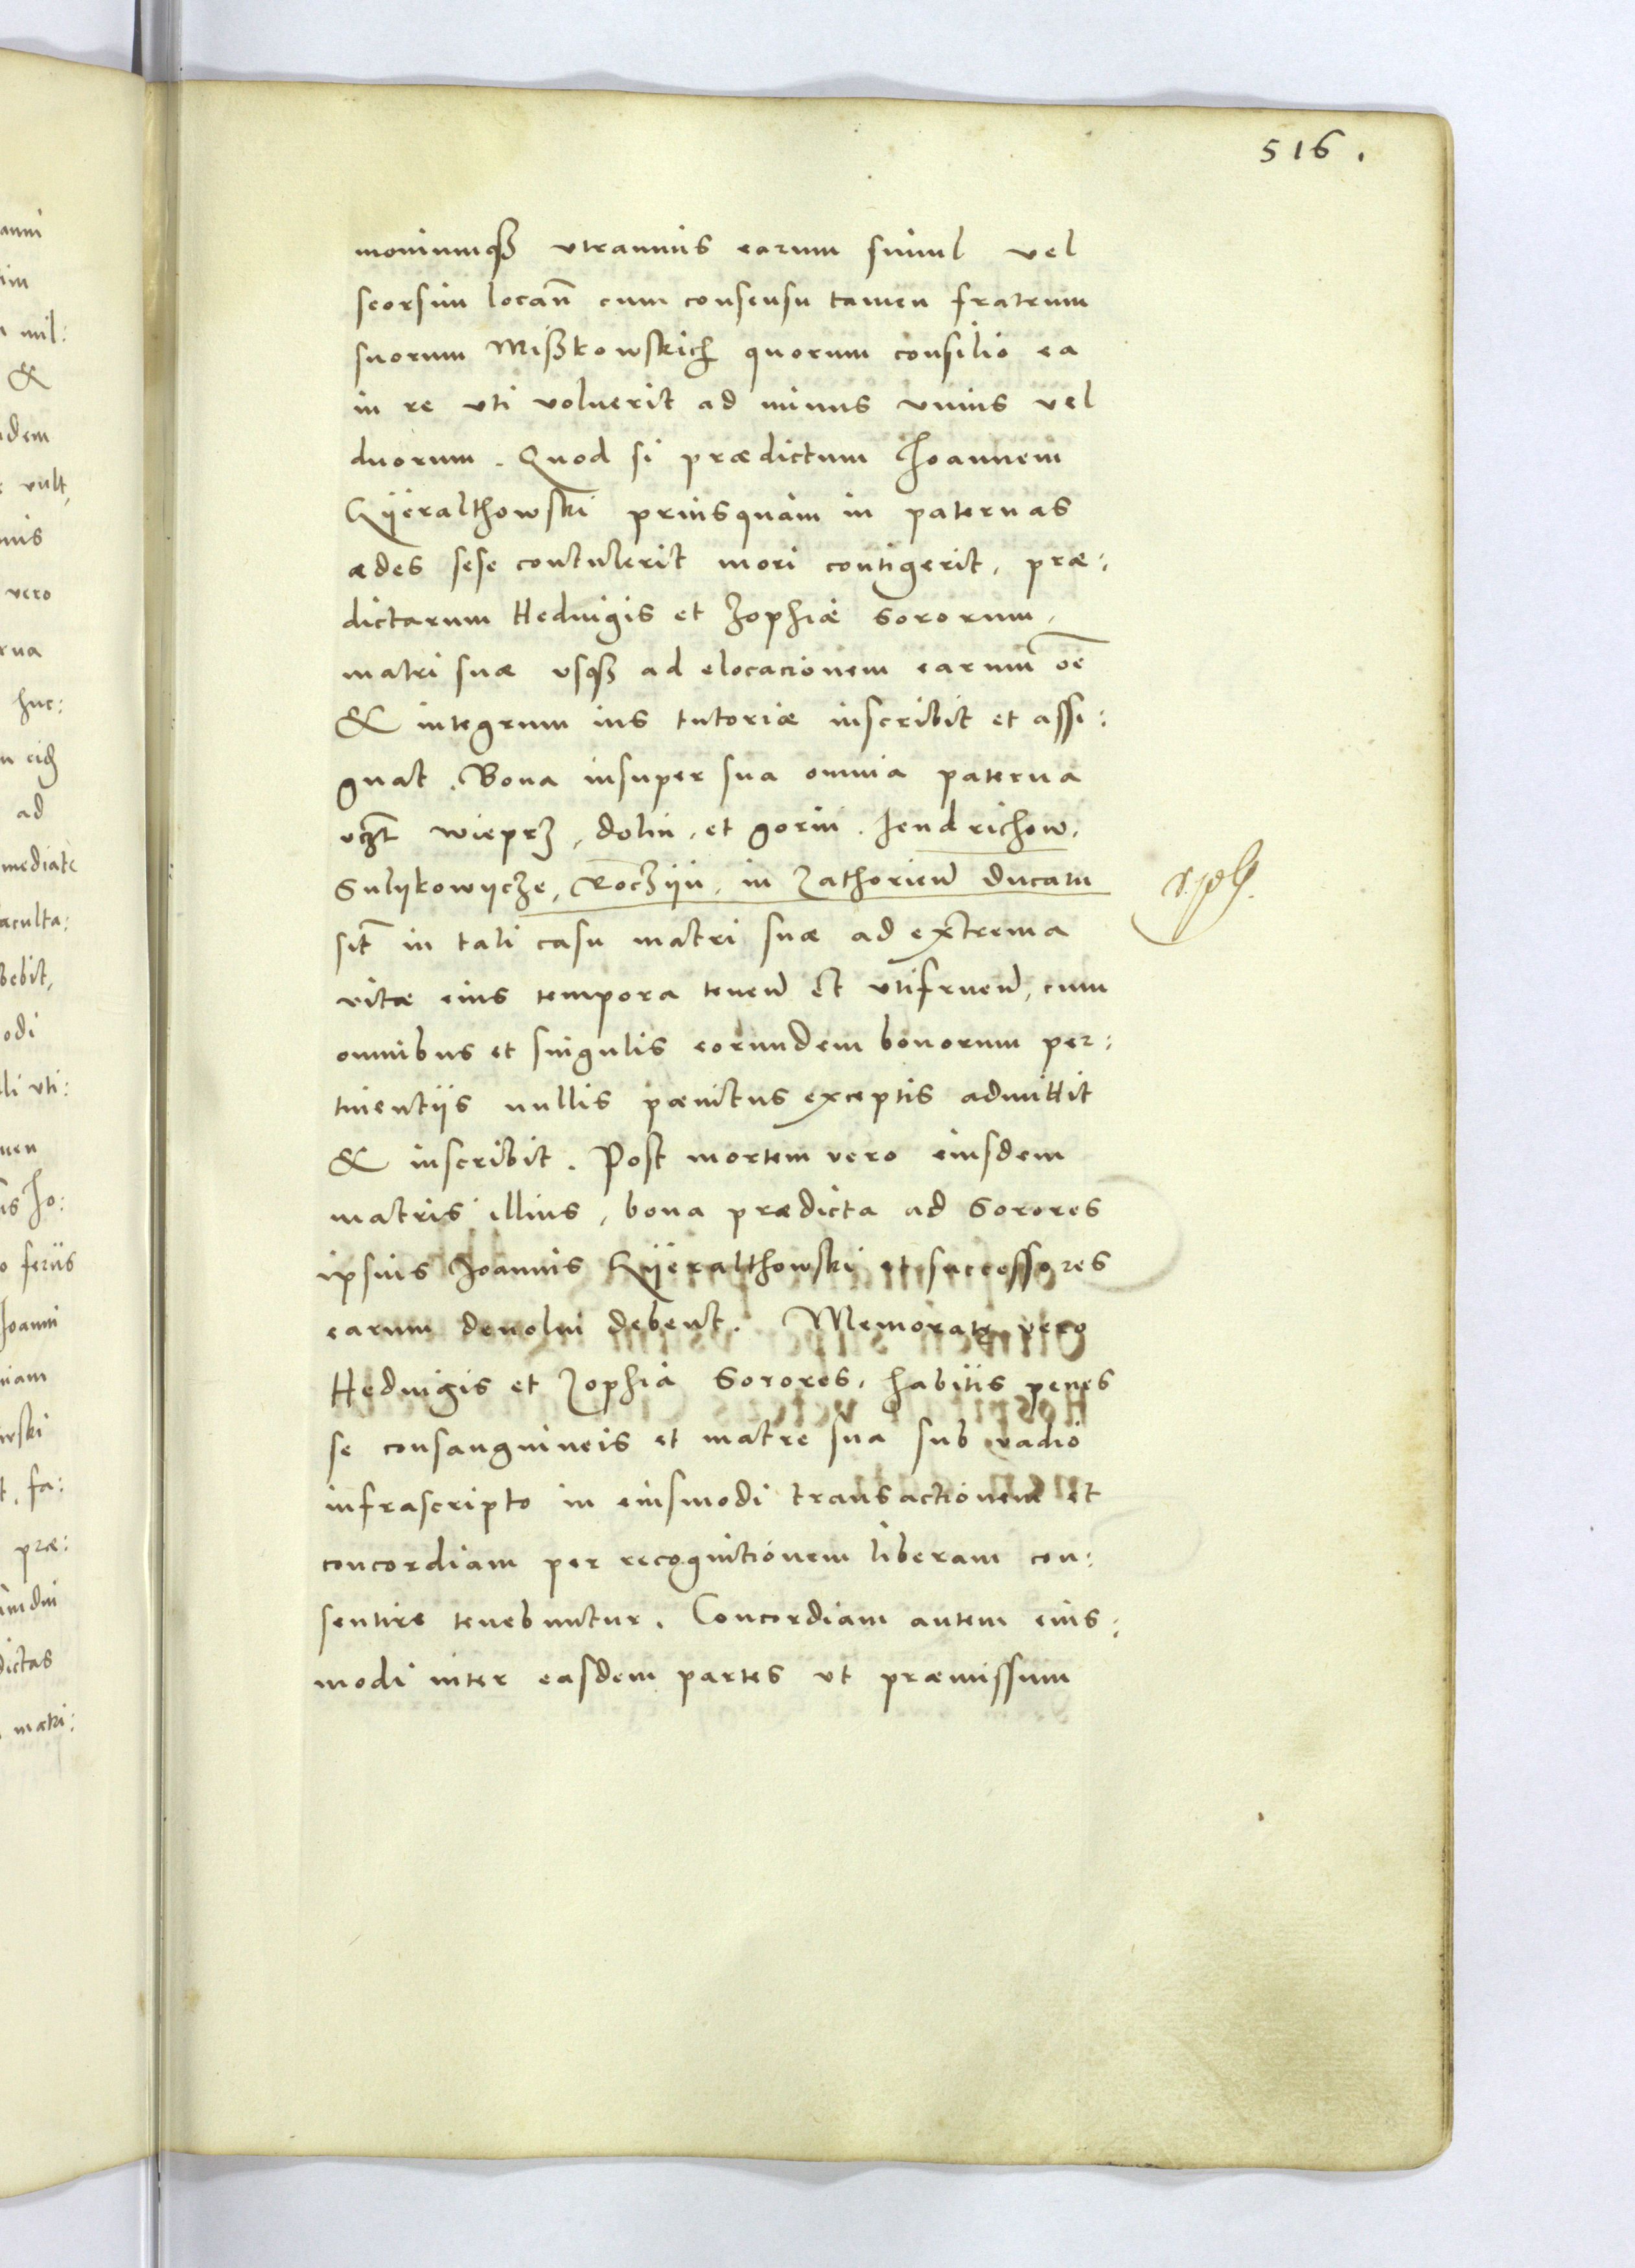 516.
moniumqꝫ utramuis earum simul vel
seorsim locan̄ cum consensu tamen fratrum
suorum Mißkowskich quorum consilio ea
in re uti voluerit ad minus unius vel
duorum. Quod si prædictum Joannem
Gÿeralthowski priusquam in paternas
ædes sese contulerit mori contigerit, præ:
dictarum Heduigis et Zophiæ sororum,
matri suæ usqꝫ ad elocacionem earum oē
& integrum ius tutoriæ inscribit et assi:
gnat. Bona insuper sua omnia paterna
vꝫt wieprz, dolni, et gorni. Jendrichow,
Sulykowycze, Roczÿn, in Zathorien̄ ducatu
sit̄ in tali casu matri suæ ad extrema
vitæ eius tempora tenen̄ et utifruen̄, cum
omnibus et singulis eorundem bonorum per:
tinentijs nullis pœnitus exceptis admittit
& inscribit. Post mortem vero eiusdem
matris illius, bona prædicta ad Sorores
ipsius Joannis Gÿeralthowski et successores
earum deuolui debent. Memoratę vero
Heduigis et Zophia Sorores, habitis penes
se consanguineis et matre sua sub vadio
infrascripto in eiusmodi transactionem et
concordiam per recognitionem liberam con:
sentire tenebuntur. Concordiam autem eius:
modi inter easdem partes ut præmissum